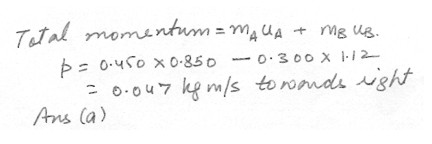 Total momentum = mA uA + mB uB.
p = 0.450 × 0.850 - 0.300 × 1.12
= 0.047 kg m/s towards right
Ans (a)